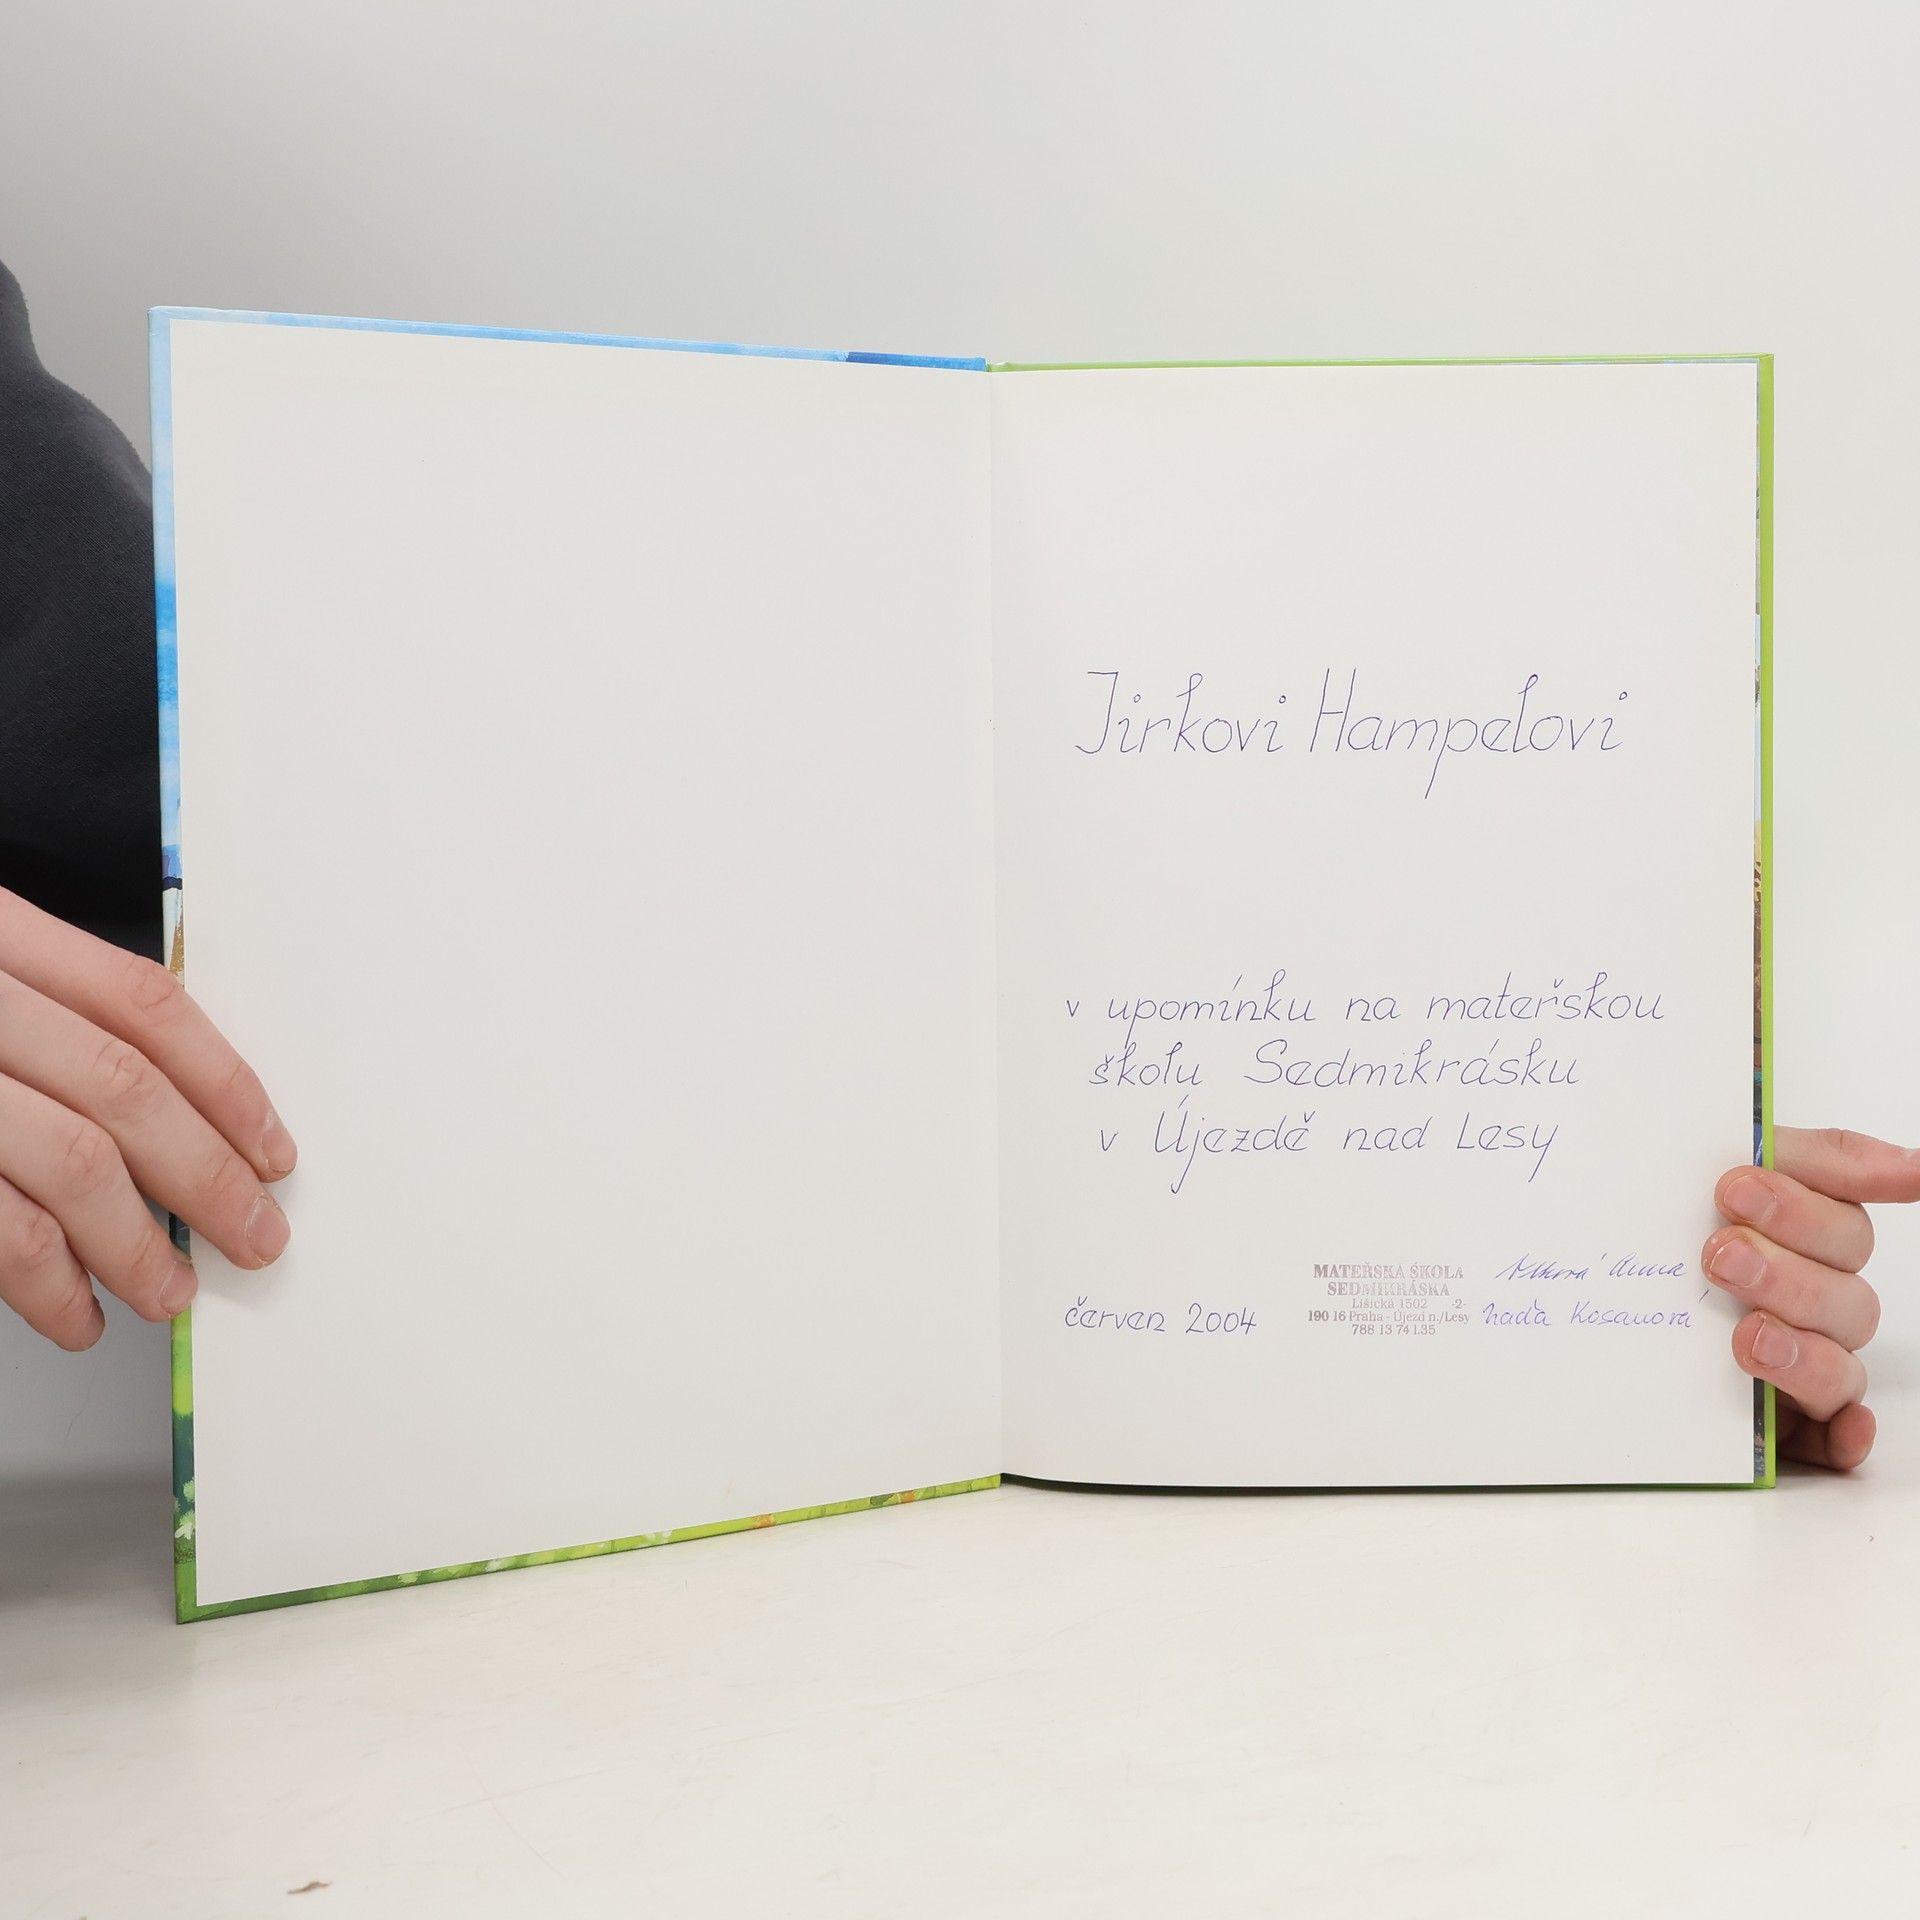 Jirkovi Hampelovi
v upomínku na mateřskou
školu Sedmikrásku
v Újezdě nad Lesy
MATEŘSKÁ ŠKOLA
SEDMIKRÁSKA
Lišická 1502 -2-
190 16 Praha - Újezd n./Lesy
788 13 74 1.35
červen 2004
Anna
Naďa Kosanová